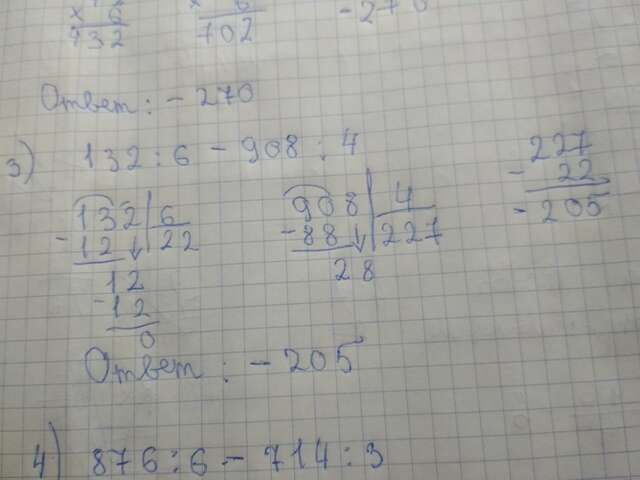 × 6 × 6 -270
732 702
Ответ: - 270
3) 132 : 6 - 908 : 4
132 | 6 908 | 4 227
- 12 22 - 88 227 - 22
12 28 - 205
- 12
0
Ответ: - 205
4) 876 : 6 - 714 : 3